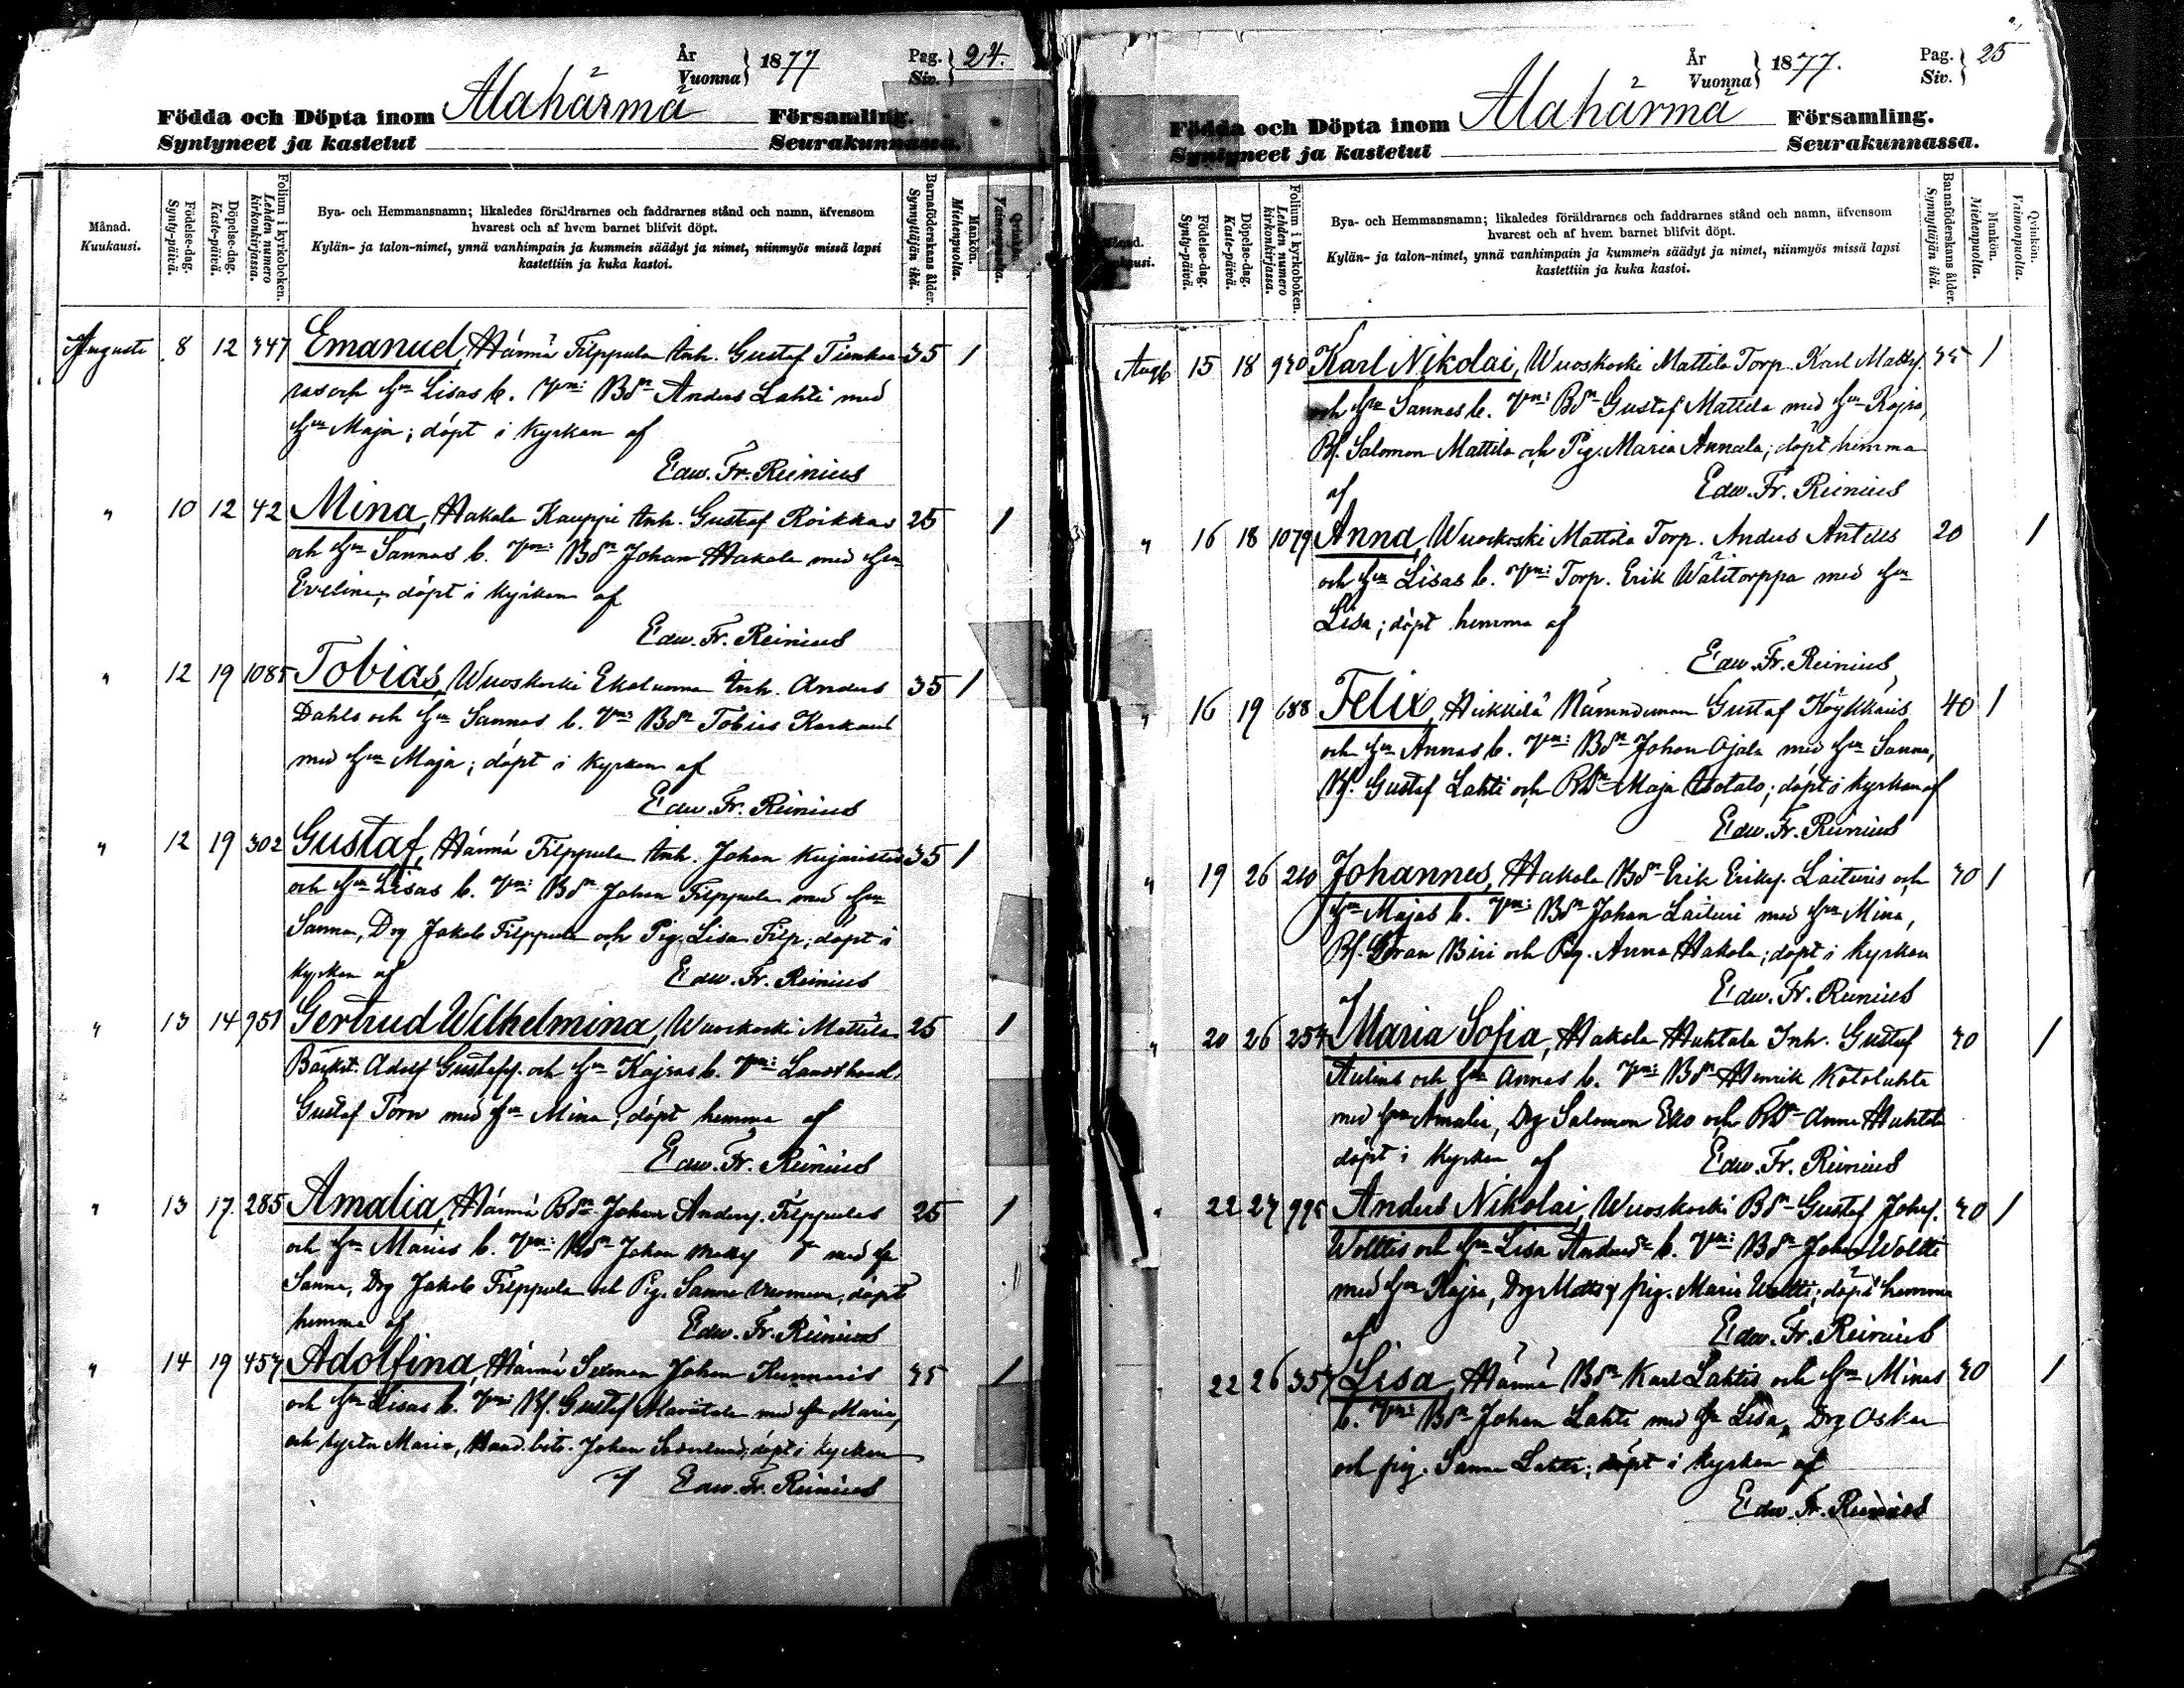 År
Vuonna } 1877
Pag.
Siv. } 24.
Födda och Döpta inom Alahärmä Församling.
Syntyneet ja kastetut Seurakunnassa.
Månad.
Kuukausi.
Födelse-dag.
Synty-päivä.
Döpelse-dag.
Kaste-päivä.
Folium i kyrkoboken.
Lehden numero
kirkonkirjassa.
Bya- och Hemmansnamn; likaledes föräldrarnes och faddrarnes stånd och namn, äfvensom
hvarest och af hvem barnet blifvit döpt.
Kylän- ja talon-nimet, ynnä vanhimpain ja kummein säädyt ja nimet, niinmyös missä lapsi
kastettiin ja kuka kastoi.
Barnaföderskans ålder.
Synnyttäjän ikä.
Mankön.
Miehenpuolta.
Qvinkön.
Vaimonpuolta.
Augusti 8 12 347 Emanuel, Härmä Filppula Inh. Gustaf 35 1
och Hn Lisas b. Vn: Bdn Anders Lahti med
Hn Maja; döpt i Kyrkan af
Edw. Fr. Reinius
" 10 12 42 Mina, Hakala Kauppi Inh. Gustaf Roikkas 25 1
och Hn Sannas b. Vn: Bdn Johan Hakala med Hn
Evelina, döpt i Kyrkan af
Edw. Fr. Reinius
" 12 19 1085 Tobias, Wuoskoski Ekoluoma Inh. Anders 35 1
Dahls och Hn Sannas b. Vn: Bdn Tobias
med Hn Maja; döpt i Kyrkan af
Edw. Fr. Reinius
" 12 19 302 Gustaf, Härmä Filppula Inh. Johan 35 1
och Hn Lisas b. Vn: Bdn Johan Filppula med Hn
Sanna, Drg Jakob Filppula och Pig. Lisa Filp; döpt i
Kyrkan af Edw. Fr. Reinius
" 13 14 951 Gertrud Wilhelmina, Wuoskoski Mattila 25 1
Adolf Gustafs. och Hn Kajsas b. Vn:
Gustaf Törn med Hn Mina; döpt hemma af
Edw. Fr. Reinius
" 13 17. 285 Amalia, Härmä Bdn Johan Anders. Filppulas 25 1
och Hn Marias b. Vn: Bdn Johan med Hn
Sanna, Drg Jakob Filppula och Pig. Sanna döpt
hemma af Edw. Fr. Reinius
" 14 19 457 Adolfina, Härmä Johan 35 1
och Hn Lisas b. Vn: Bf. Gustaf med Hn Maria,
och Maria, Johan döpt i kyrkan
af Edw. Fr. Reinius
År
Vuonna } 1877.
Pag.
Siv. } 25
Födda och Döpta inom Alahärmä Församling.
Syntyneet ja kastetut Seurakunnassa.
Födelse-dag.
Synty-päivä.
Döpelse-dag.
Kaste-päivä.
Folium i kyrkoboken.
Lehden numero
kirkonkirjassa.
Bya- och Hemmansnamn; likaledes föräldrarnes och faddrarnes stånd och namn, äfvensom
hvarest och af hvem barnet blifvit döpt.
Kylän- ja talon-nimet, ynnä vanhimpain ja kummein säädyt ja nimet, niinmyös missä lapsi
kastettiin ja kuka kastoi.
Barnaföderskans ålder.
Synnyttäjän ikä.
Mankön.
Miehenpuolta.
Qvinkön.
Vaimonpuolta.
Aug. 15 18 930 Karl Nikolai, Wuoskoski Mattila Torp. Karl Matts. 35 1
och Hn Sannas b. Vn: Bdn Gustaf Mattila med Hn Kajsa,
Bf. Salomon Mattila och Pig. Maria Annala; döpt hemma
af Edw. Fr. Reinius
" 16 18 1079 Anna, Wuoskoski Mattila Torp. Anders Antilas 20 1
och Hn Lisas b. Vn: Torp. Erik Wälitorppa med Hn
Lisa; döpt hemma af
Edw. Fr. Reinius
" 16 19 688 Felix, Heikkilä Nämndeman Gustaf Köykkäis 40 1
och Hn Annas b. Vn: Bdn Johan Ojala med Hn Sanna,
Bf. Gustaf Lahti och Bdn Maja Isotalo; döpt i kyrkan af
Edw. Fr. Reinius
" 19 26 210 Johannes, Hakola Bdn Erik Eriks. Laituris och 30 1
Hn Majas b. Vn: Bdn Johan Laituri med Hn Mina,
Bf. Göran Biri och Pig. Anna Hakola; döpt i kyrkan
af Edw. Fr. Reinius
" 20 26 254 Maria Sofia, Hakola Huhtala Inh. Gustaf 30 1
och Hn Annas b. Vn: Bdn Henrik Kotoluhta
med Hn Amalia, Drg Salomon och Bdn Anna Huhtala
döpt i Kyrkan af Edw. Fr. Reinius
" 22 27 995 Anders Nikolai, Wuoskoski Bdn Gustaf Johs. 30 1
Wolttis och Hn Lisa b. Vn: Bdn Johan Woltti
med Hn Kajsa, Drg Matts och pig. Maria Woltti; döpt hemma
af Edw. Fr. Reinius
" 22 26 357 Lisa, Härmä Bdn Karl Lahtis och Hn Minas 30 1
b. Vn: Bdn Johan Lahti med Hn Lisa, Drg Oskar
och pig. Sanna Lahti; döpt i kyrkan af
Edw. Fr. Reinius